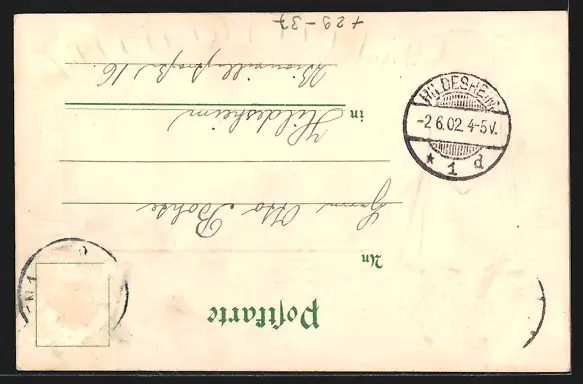 Postkarte
An
Herrn Otto Bohse
in Hildesheim
16.
HILDESHEIM
-2 6.02. 4-5V.
* 1 d
+ 29 - 37